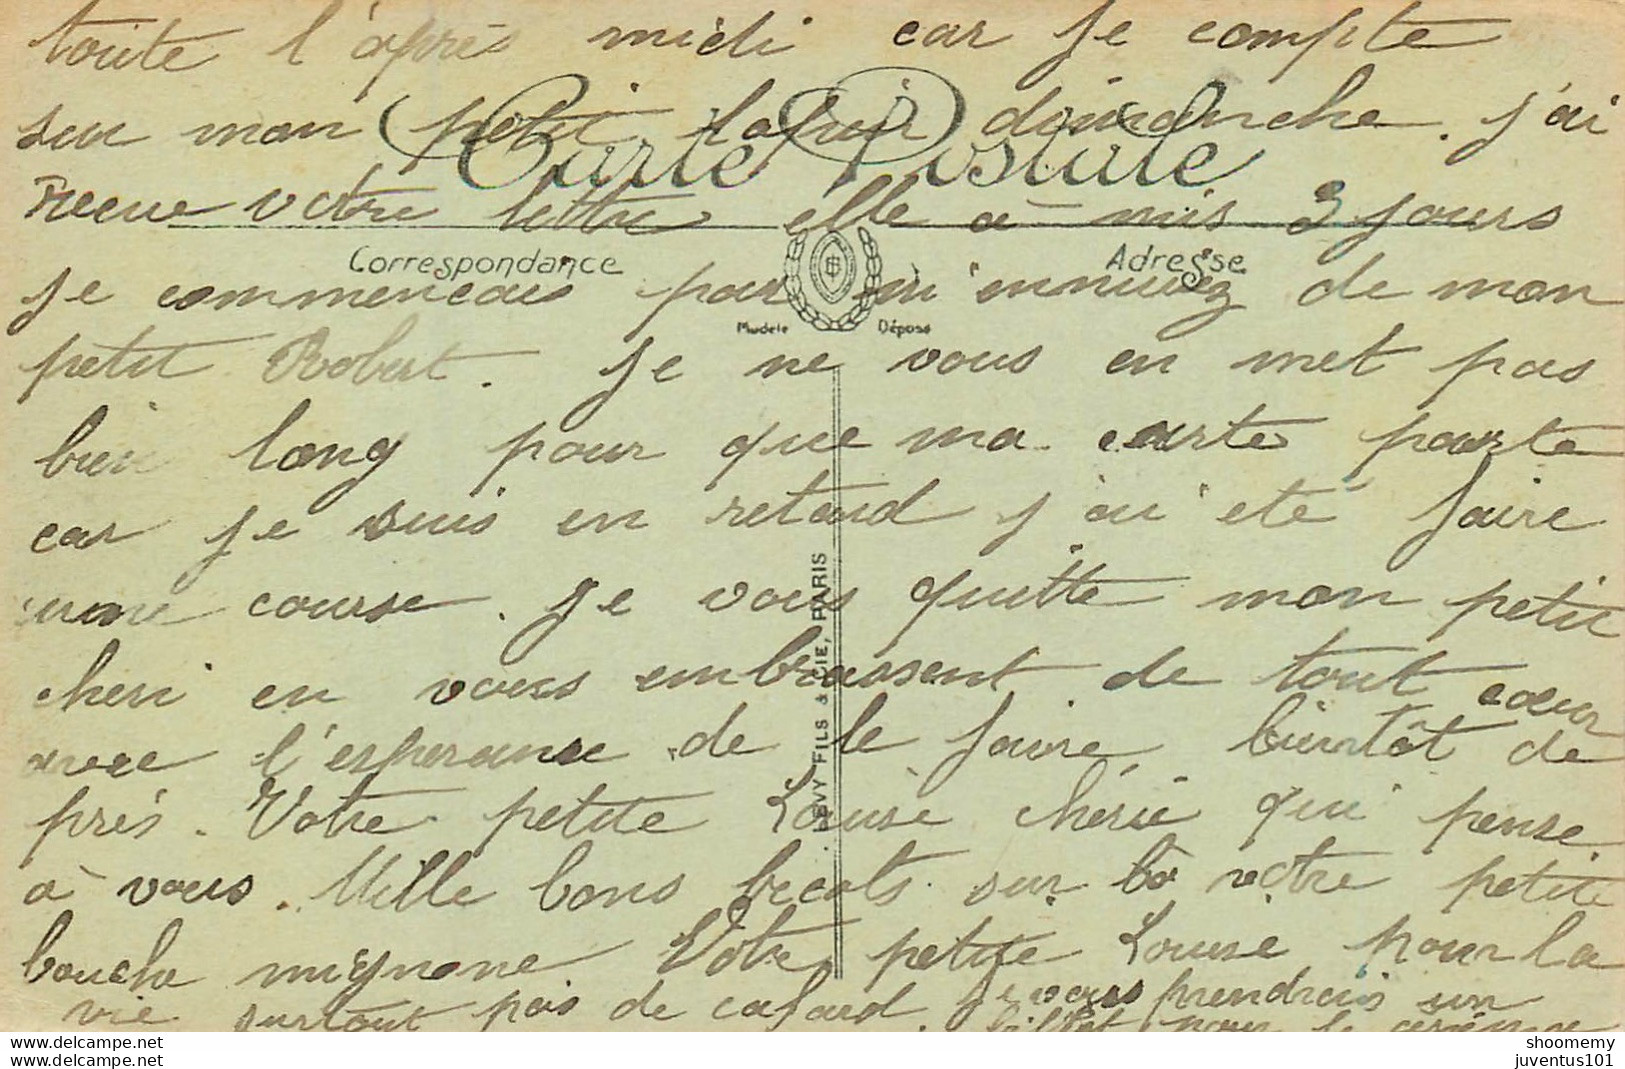 toute l'après midi car je compte
sur mon petit lapin dimanche. j'ai
Carte Postale
Recue votre lettre elle à mis 3 jours
Correspondance
Adresse
je commencais par m'ennuiez de mon
Modèle Déposé
petit Robert. je ne vous en met pas
bien long pour que ma carte parte
car je suis en retard j'ai eté faire
une course. Je vous quitte mon petit
cheri en vous embrassent de tout cœur
avec l'esperance de le faire bientôt de
près. Votre petite Louise chérie qui pense
à vous. Mille bons becots sur la votre petite
bouche mignone. Votre petite Louise pour la
vie surtout pas de cafard. Je vous prendrais un
billet pour le cinéma
LEVY FILS & CIE, PARIS
www.delcampe.net
www.delcampe.net
shoomemy
juventus101